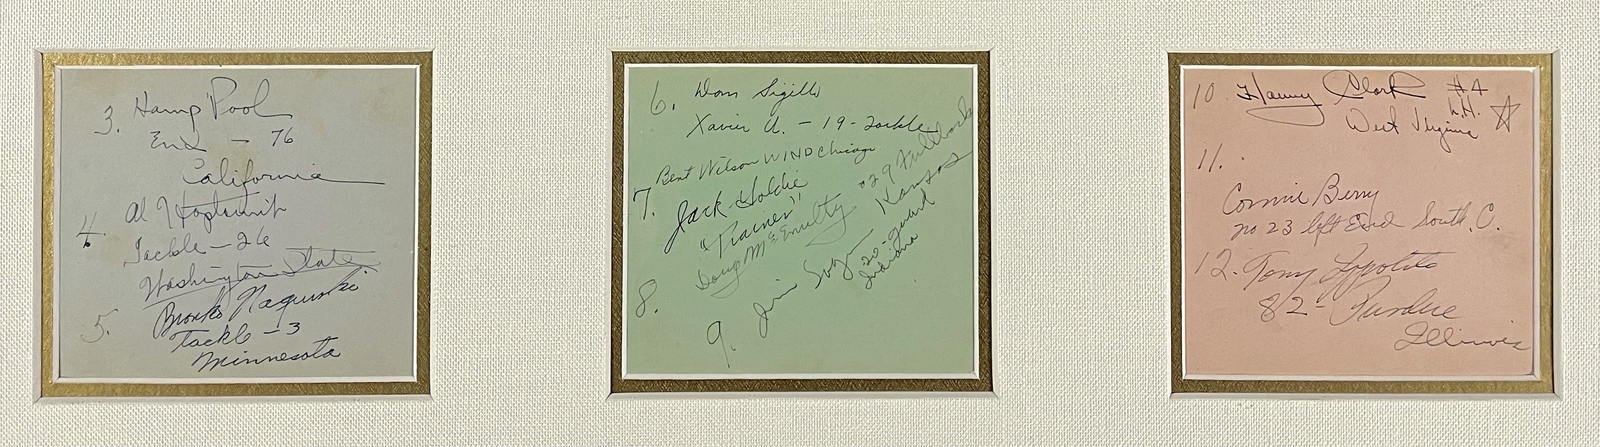 3. Hamp Pool
End - 76
California
4. Al Hoptowit
Tackle - 26
Washington State
5. Bronko Nagurski
Tackle - 3
Minnesota
6. Dom Sigillo
Xavier U. - 19 - Tackle
Bert Wilson WIND Chicago
7. Jack Goldie
"Trainer"
8. Doug McEnulty
29 Fullback
Kansas
9. Jim
20 - guard
Indiana
10 Harry Clark #4
L.H.
West Virginia
11.
Connie Berry
no 23 left End South. C.
12. Tony Ippolito
82 - Purdue
Illinois